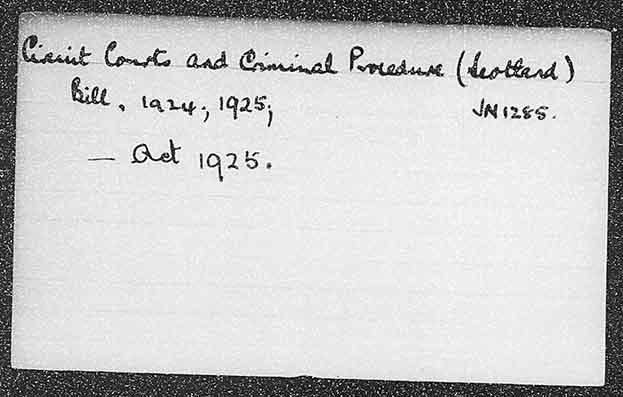 Circuit Courts and Criminal Procedure (Scotland)
Bill, 1924; 1925; JN1285.
— Act 1925.